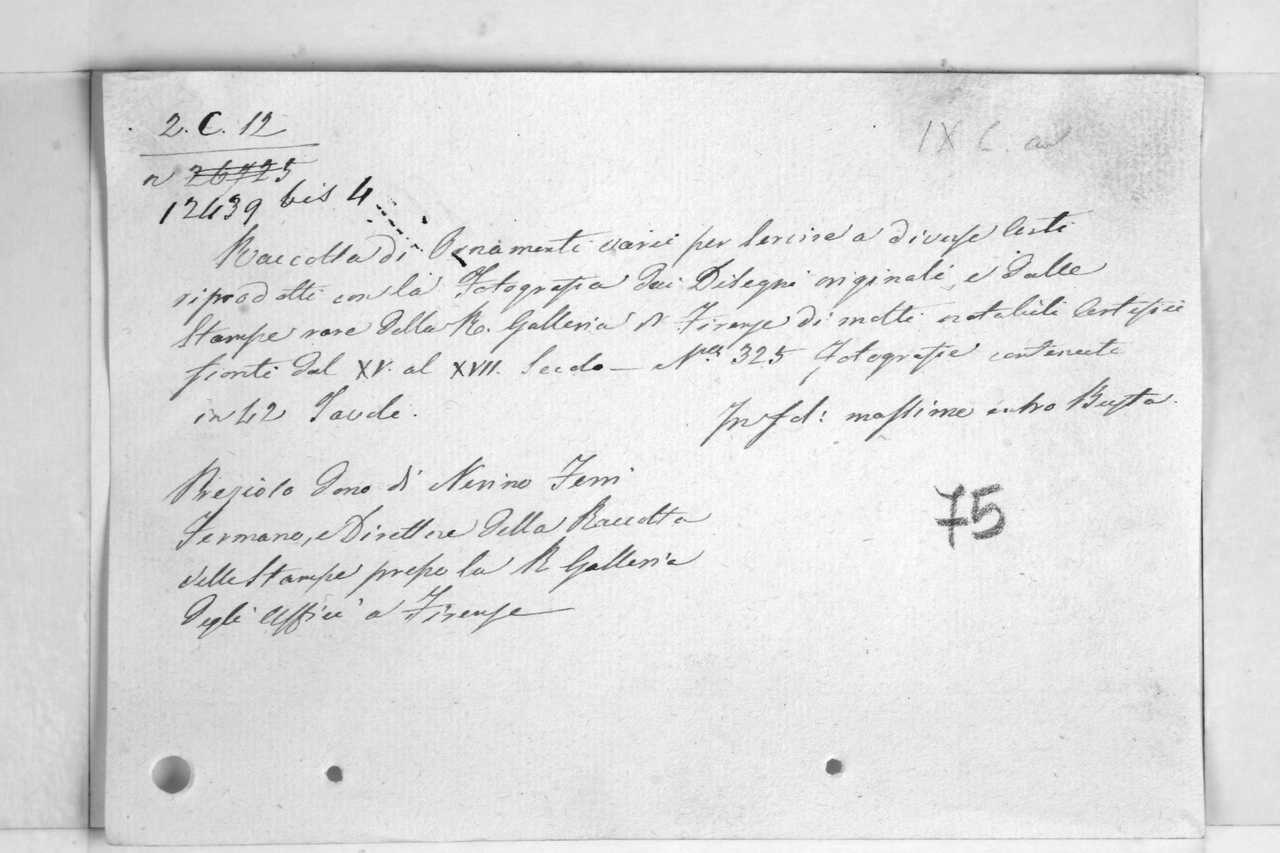 2. C. 12
IX C.
n 26725
12439 bis 4
Raccolta di Ornamenti varii per servire a diverse Arti
riprodotti con la Fotografia dai Disegni originali, e dalle
Stampe rare della R. Galleria di Firenze di molti notabili Artefici
fioriti dal XV. al XVII. Secolo — N.º 325 Fotografie contenute
in 42 Tavole.
In fol: massimo entro Busta.
Prezioso dono di Nerino Ferri
Fermano, e Direttore della Raccolta
delle Stampe presso la R Galleria
degli Uffici a Firenze
75